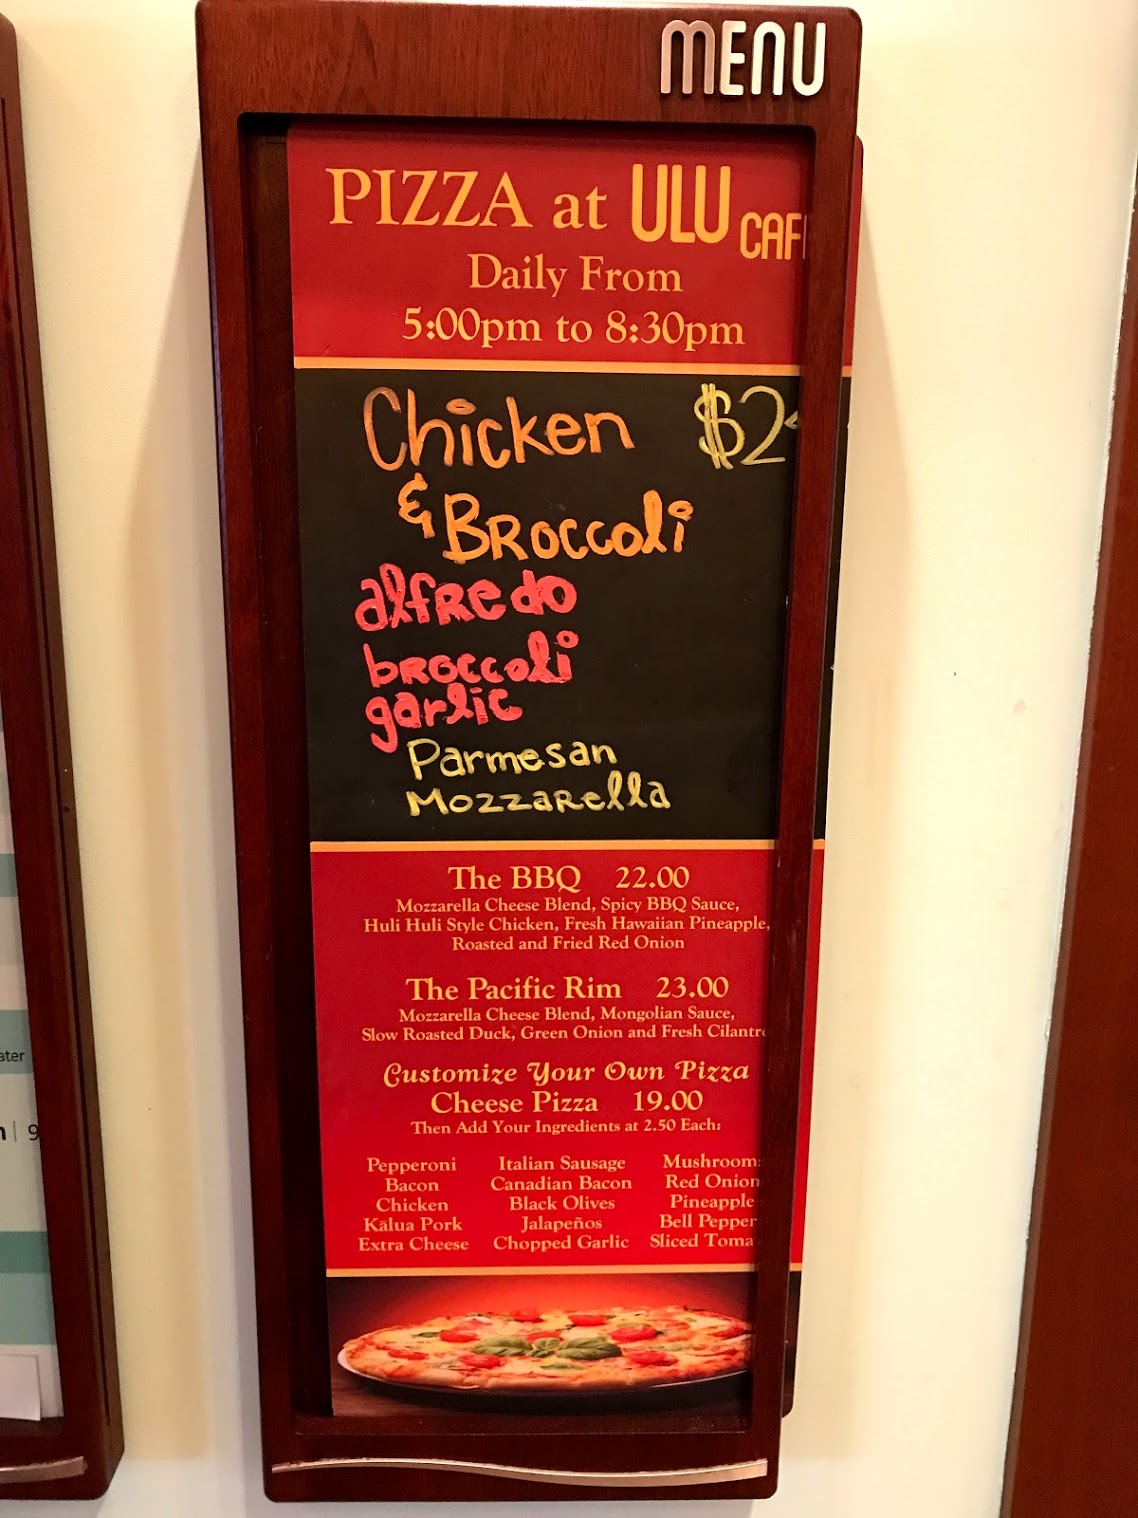 MENU
PIZZA at ULU CAF
Daily From
5:00pm to 8:30pm
Chicken $2
& Broccoli
alfredo
broccoli
garlic
Parmesan
Mozzarella
The BBQ 22.00
Mozzarella Cheese Blend, Spicy BBQ Sauce,
Huli Huli Style Chicken, Fresh Hawaiian Pineapple,
Roasted and Fried Red Onion
The Pacific Rim 23.00
Mozzarella Cheese Blend, Mongolian Sauce,
Slow Roasted Duck, Green Onion and Fresh Cilantr
Customize Your Own Pizza
Cheese Pizza 19.00
Then Add Your Ingredients at 2.50 Each:
Pepperoni Italian Sausage Mushroom
Bacon Canadian Bacon Red Onion
Chicken Black Olives Pineapple
Kālua Pork Jalapeños Bell Pepper
Extra Cheese Chopped Garlic Sliced Toma
ater
| 9